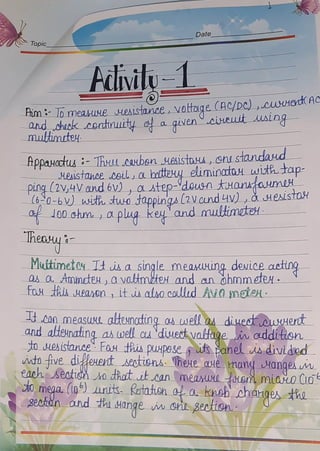 Topic
Date
Activity-1
Aim:- To measure resistance, voltage (AC/DC), current (AC
and check continuity of a given circuit using
multimeter.
Apparatus:- Three carbon resistors, one standard
resistance coil, a battery eliminator with tap-
ping (2V, 4V and 6V), a step-down transformer
(6-0-6V) with two tappings (2V and 4V), a resistor
of 100 ohm, a plug key and multimeter.
Theory:-
Multimeter It is a single measuring device acting
as a Ammeter, a voltmeter and an ohmmeter.
For this reason, it is also called AVO meter.
It can measure alternating as well as direct current
and alternating as well as direct voltage in addition
to resistance. For this purpose, its panel is divided
into five different sections. There are many ranges in
each section so that it can measure from micro (10⁻⁶
to mega (10⁶) units. Rotation of a knob changes the
section and the range in one section.